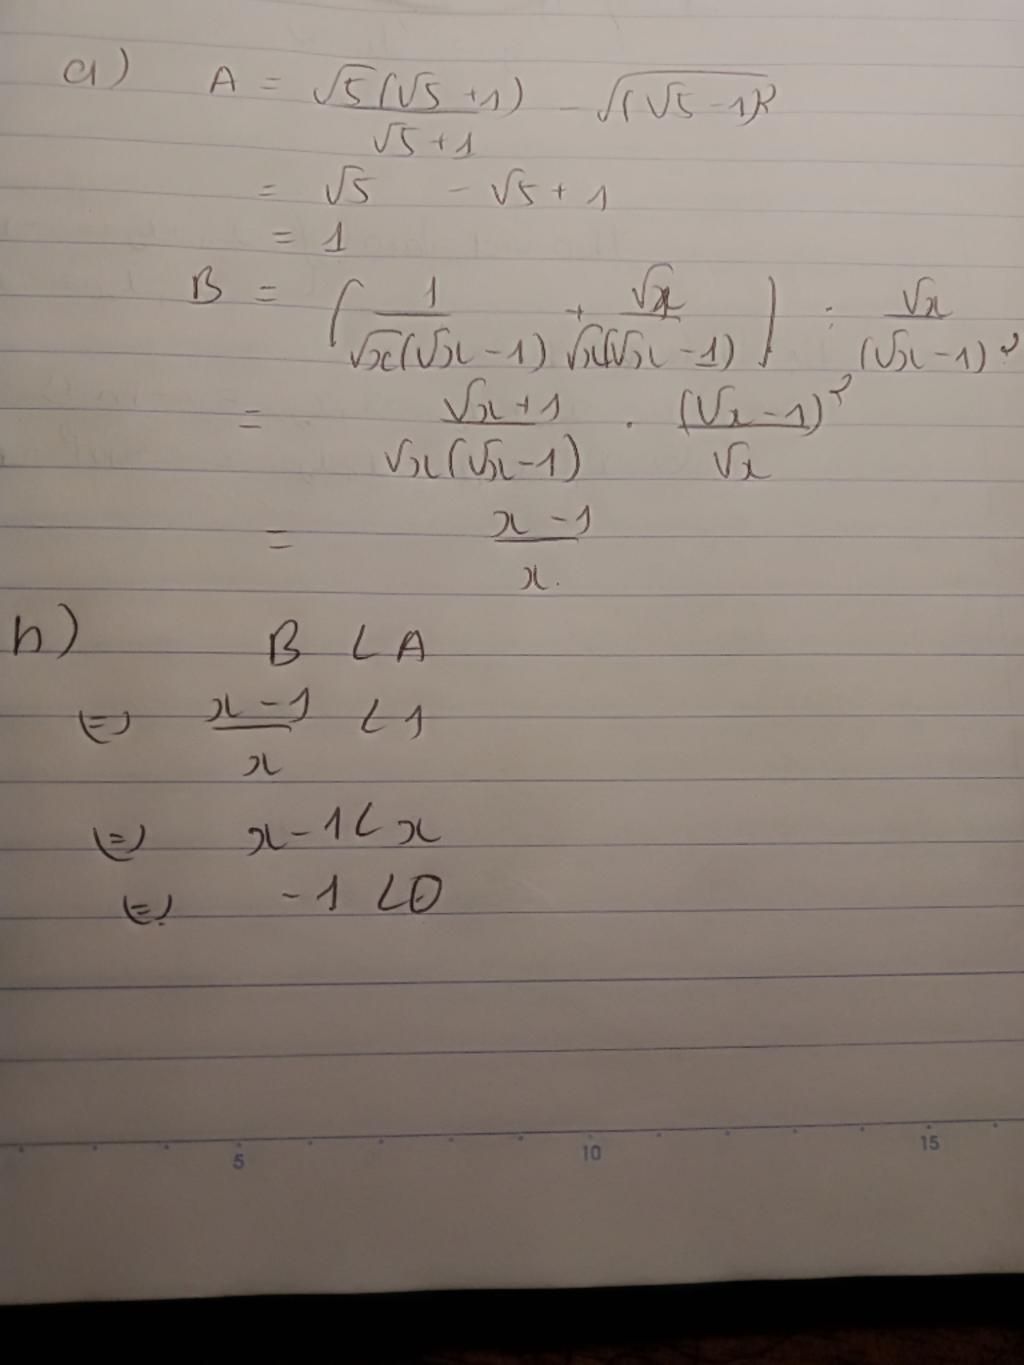 a) A = √5(√5 + 1) / √5 + 1 - √(√5 - 1)²
= √5 - √5 + 1
= 1
B = ( 1 / √x(√x - 1) + √x / √x(√x - 1) ) : √x / (√x - 1)²
= √x + 1 / √x(√x - 1) . (√x - 1)² / √x
= x - 1 / x.
b) B < A
⇔ x - 1 / x < 1
⇔ x - 1 < x
⇔ -1 < 0
5 10 15